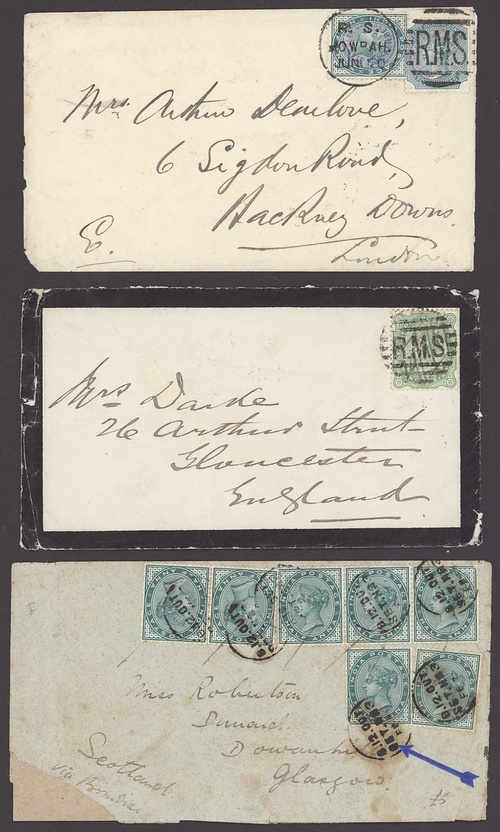 R. S.
HOWRAH.
JUN 50
RMS
Mrs Arthur Dearlove,
6 Sigdon Road,
Hackney Downs.
London
E.
RMS
Mrs Darke
26 Arthur Street
Gloucester
England
INDIA POSTAGE
Miss Robertson
Dunard
Dowanhill
Glasgow.
Scotland
via Brindisi